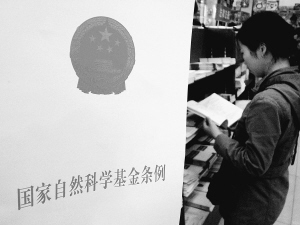 国家自然科学基金条例